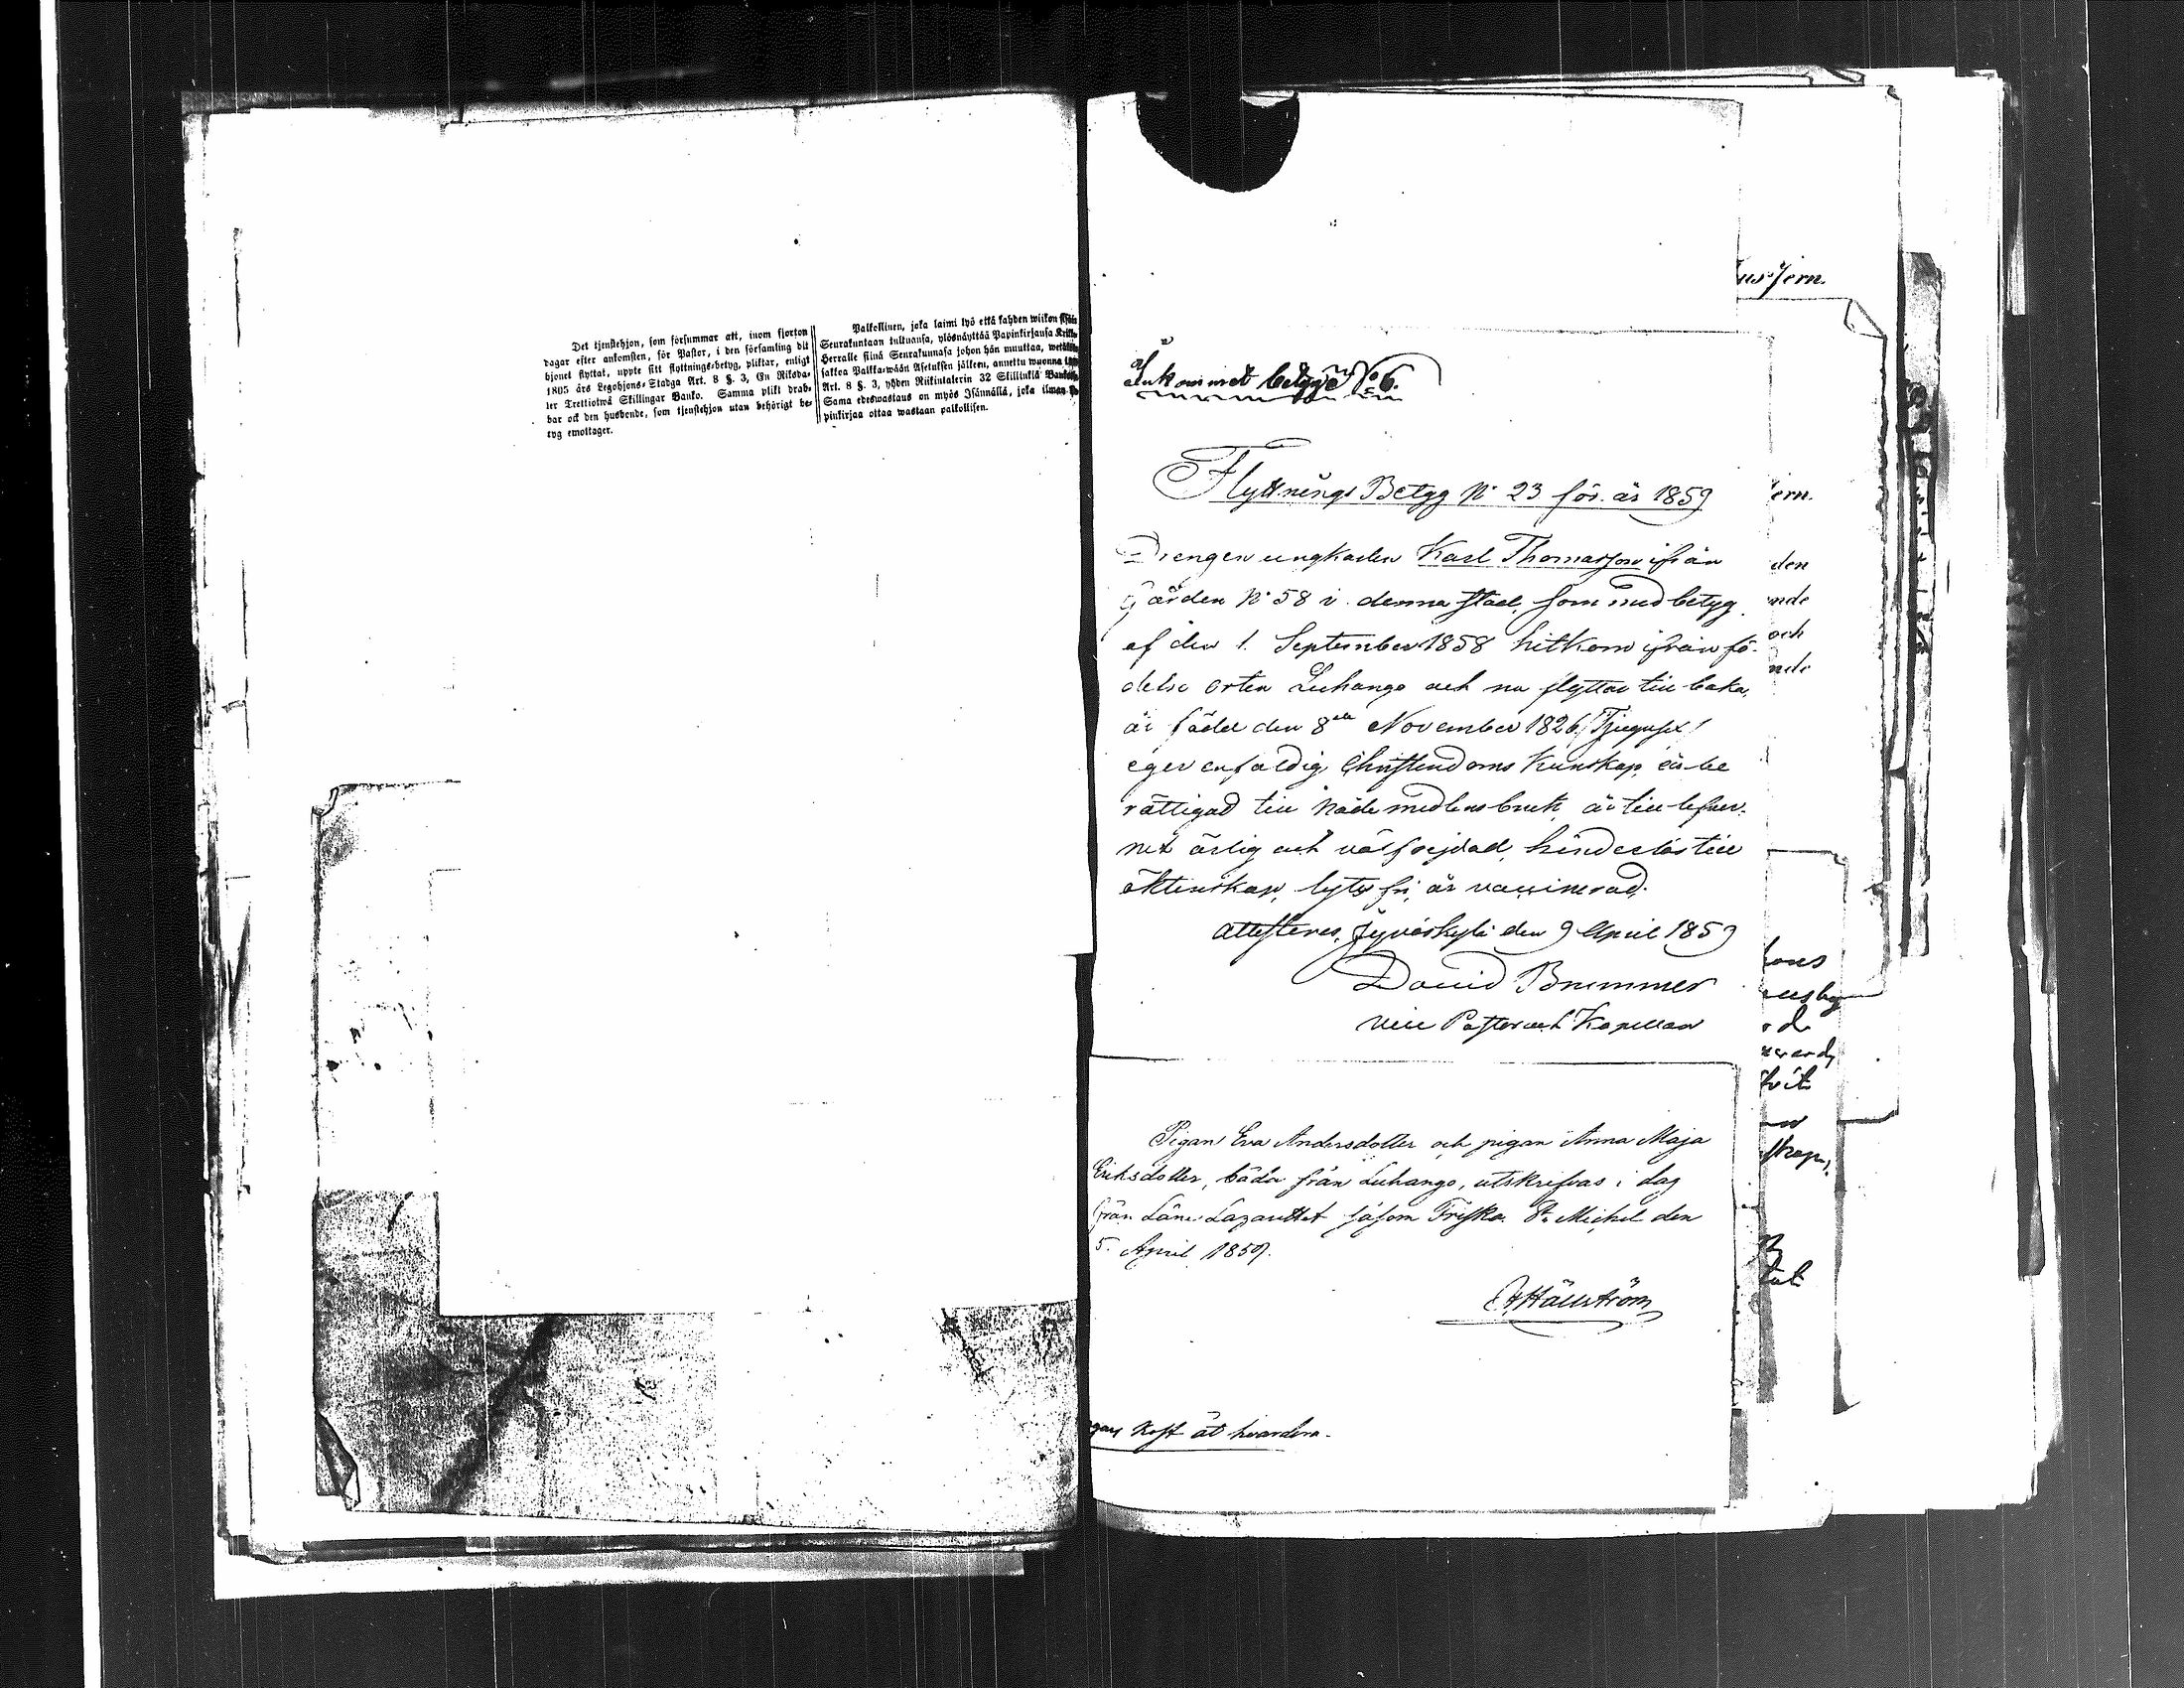 Det tjenstehjon, som försummar att, inom fjorton
dagar efter ankomsten, för Pastor, i den församling dit
hjonet flyttat, uppte sitt flyttnings-betyg, pliktar, enligt
1805 års Legohjons-Stadga Art. 8 §. 3, En Riksda-
ler Trettiotwå Skillingar Banko. Samma plikt drab-
bar ock den husbonde, som tjenstehjon utan behörigt be-
tyg emottager.
Palkollinen, joka laimi lyö että kahden wiikon sisän
Seurakuntaan tultuansa, ylösnäyttää Papinkirjansa Kirkko-
Herralle siinä Seurakunnasa johon hän muuttaa, wetäkön
sakkoa Palkka-wään Asetuksen jälkeen, annettu wuonna 1805
Art. 8 §. 3, yhden Riikintalerin 32 Skillinkiä Bankosa.
Sama edeswastaus on myös Isännällä, joka ilman Pa-
pinkirjaa ottaa wastaan palkollisen.
Inkommet betyg N:o 6.
Flyttnings Betyg N:o 23 för år 1859
Drengen ungkarlen Karl Thomasson ifrån
Gården N:o 58 i denna stad, som med betyg
af den 1. September 1858 hitkom ifrån fö-
delse orten Luhango och nu flyttar till baka,
är född den 8de November 1826 /Tjugusex/
eger enfaldig Christendoms Kunskap, är be
rättigad till Nådemedlens bruk, är till lefver-
net ärlig och välfrejdad, hinderlös till
äktenskap, lytes fri, är vaccinerad.
attesteras, Jyväskylä den 9 April 1859
David Brummer
vice Pastor och Kapellan
Pigan Eva Andersdotter och pigan Anna Maja
Eriksdotter, båda från Luhango, utskrifvas i dag
från Läns Lazarettet såsom Friska. St. Michel den
5. April 1859.
Hällström
Kost åt hvardera.
ern.
den
ande
och
ande